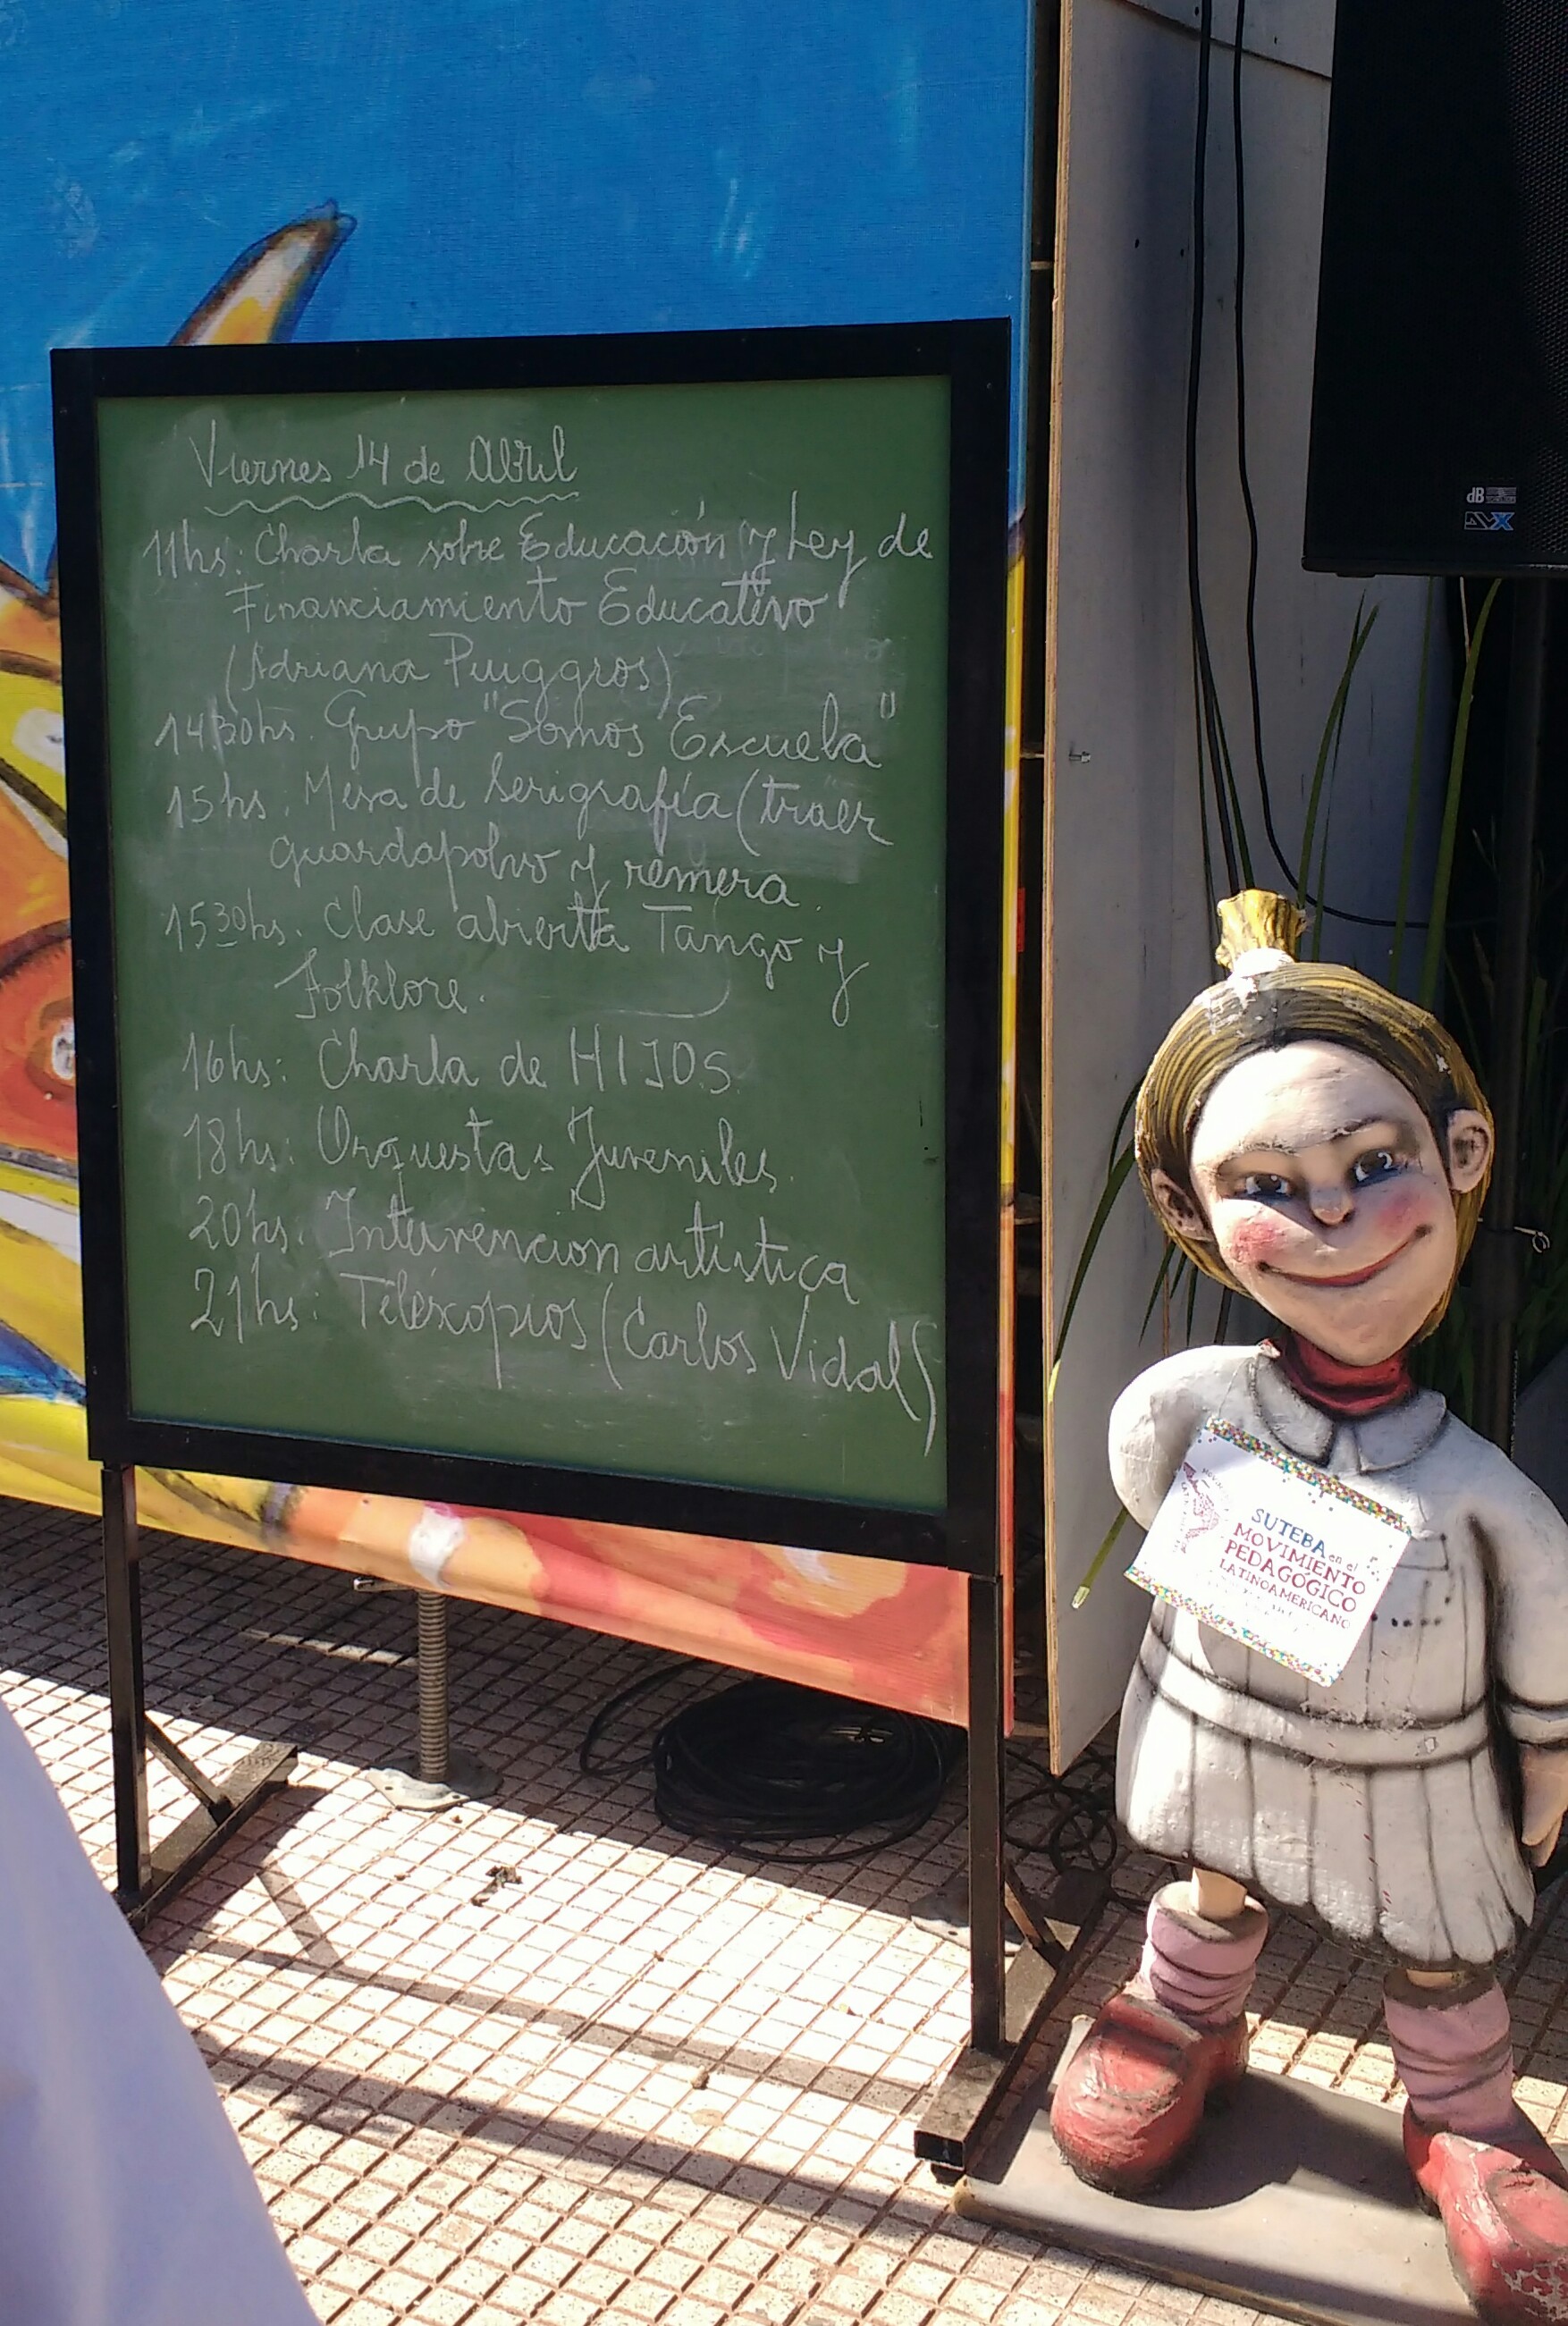 Viernes 14 de Abril
11hs: Charla sobre Educación y Ley de
Financiamiento Educativo
(Adriana Puiggros)
1430hs. Grupo "Somos Escuela"
15hs. Mesa de Serigrafía (traer
guardapolvo y remera.
1530hs. Clase abierta Tango y
Folklore.
16hs: Charla de HIJOS.
18hs: Orquestas Juveniles.
20hs. Intervencion artística
21hs: Teléscopios (Carlos Vidal)
dB
SUTEBA en el
MOVIMIENTO
PEDAGÓGICO
LATINOAMERICANO